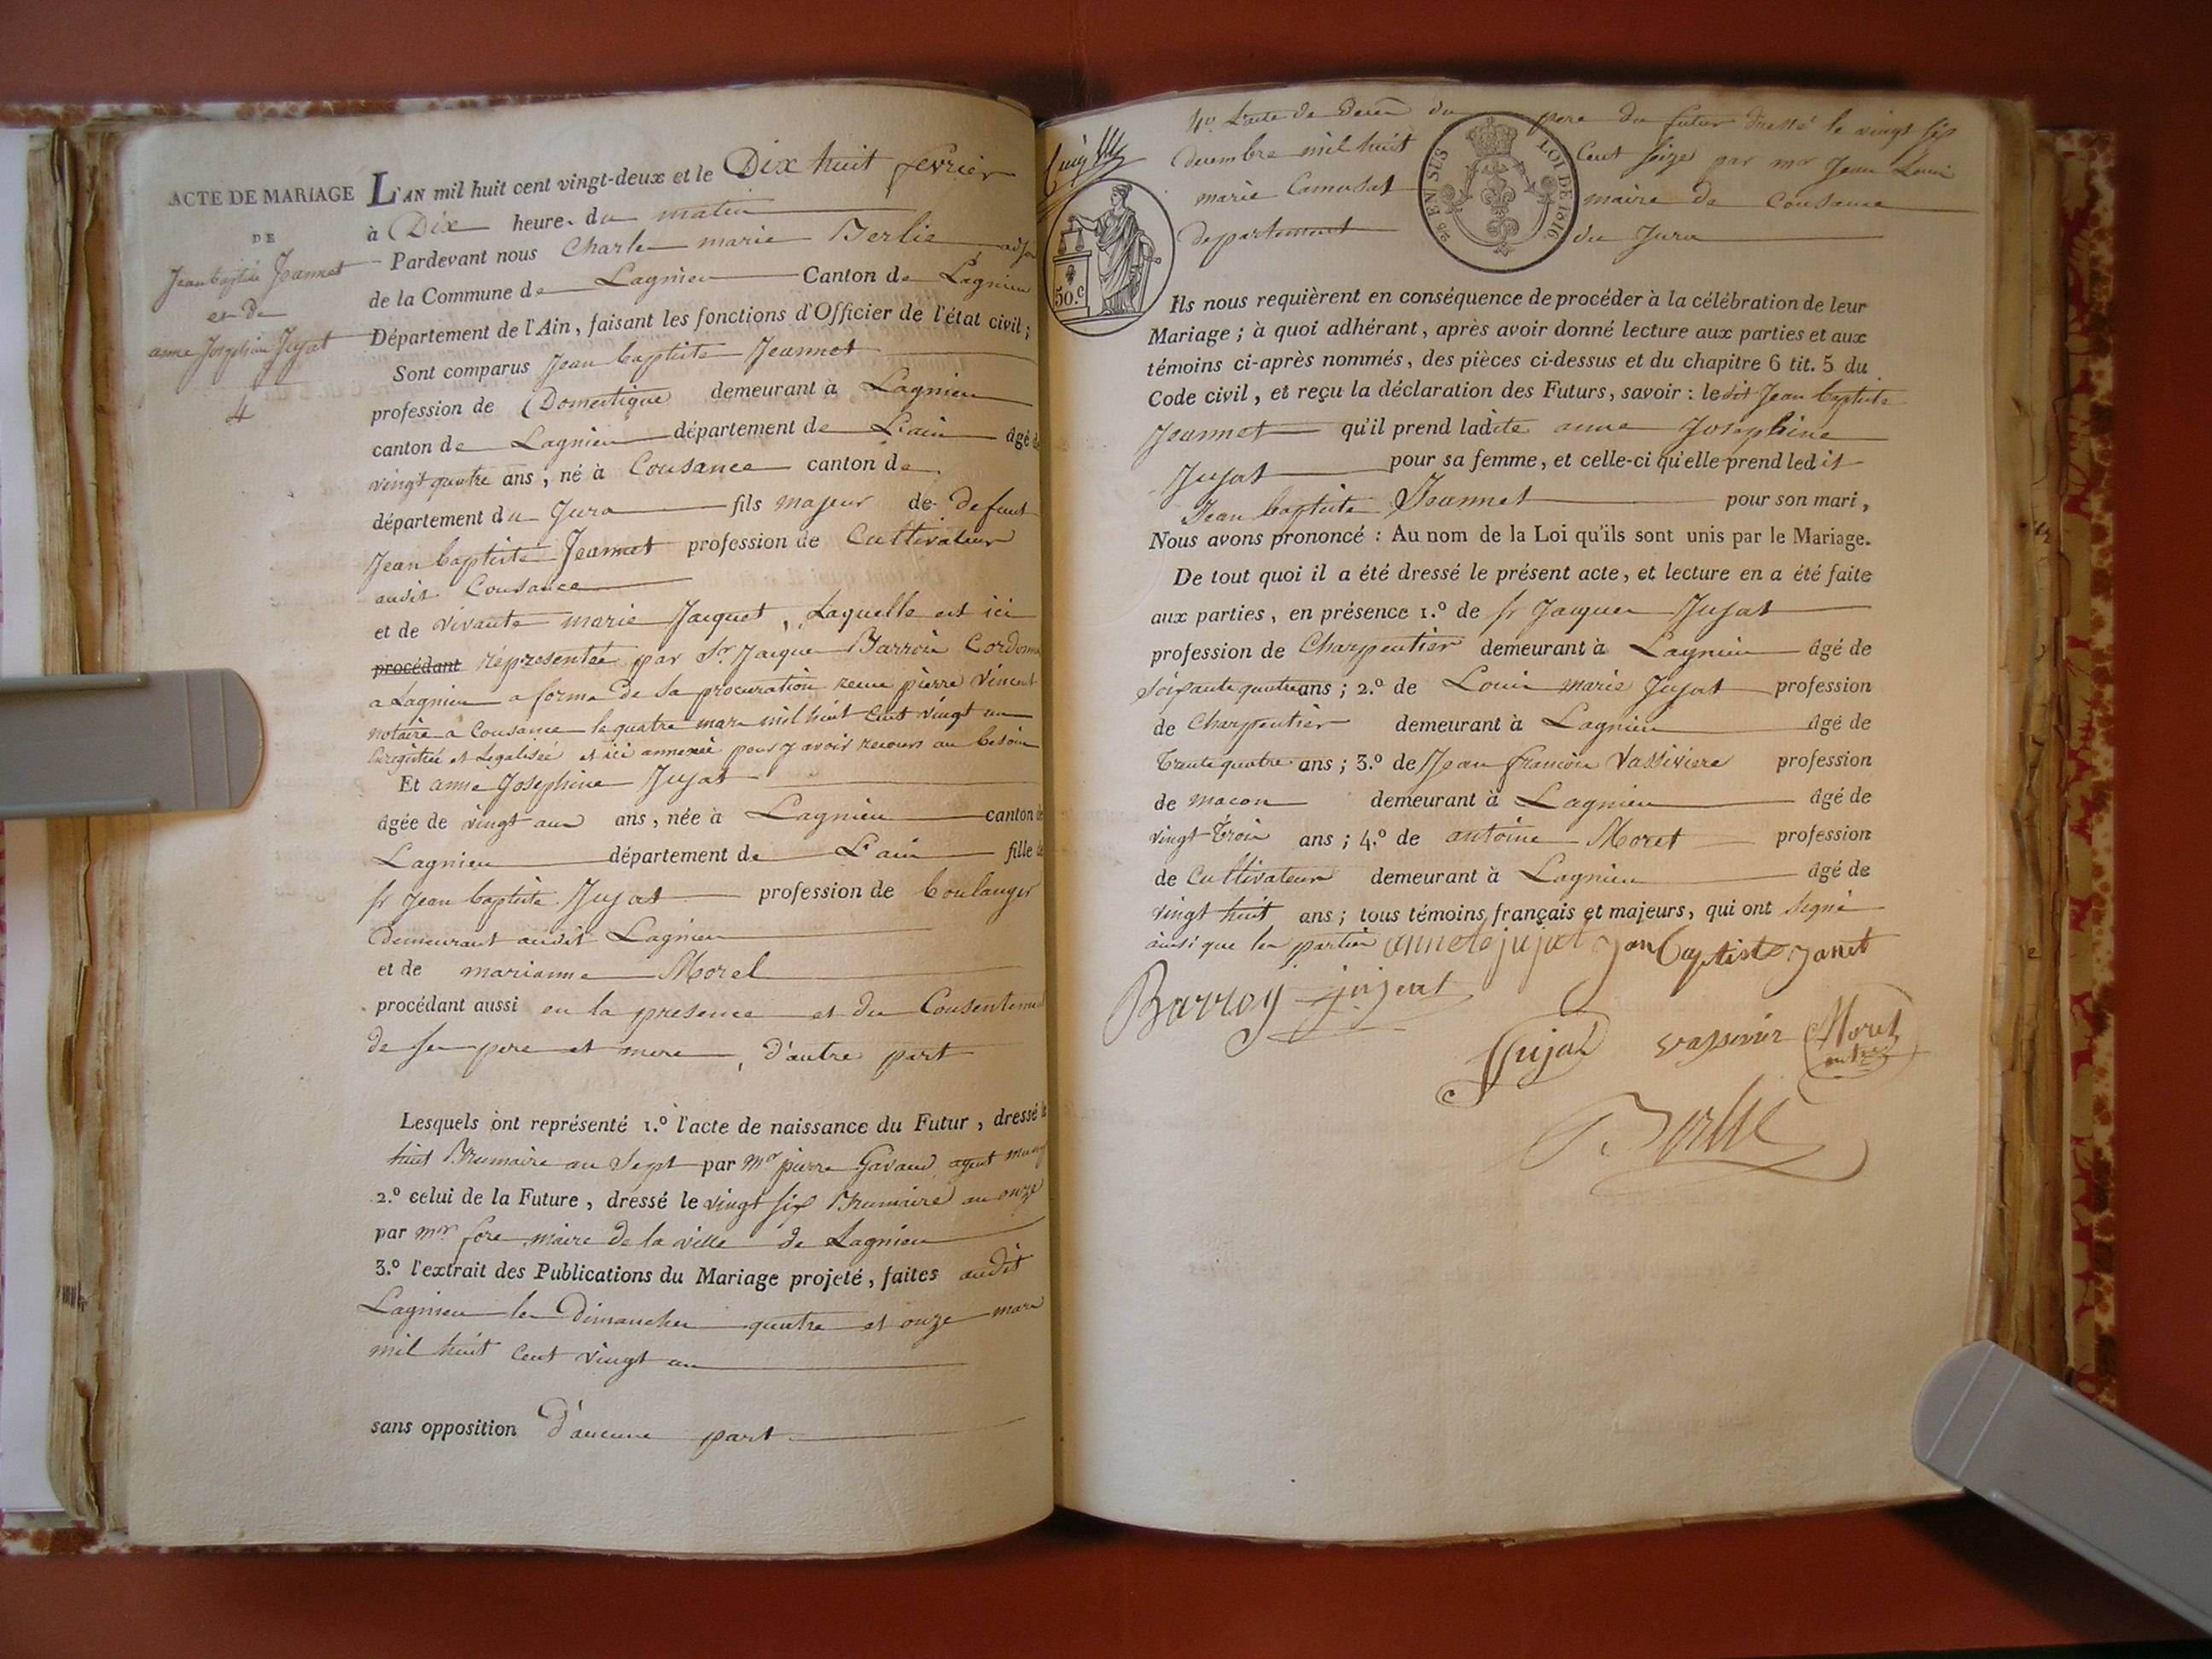 ACTE DE MARIAGE
DE
Jean baptiste Jeannet
et De
anne Josephine Jujat
4
L'AN mil huit cent vingt-deux et le Dix huit fevrier
à Dix heures du matin
Pardevant nous Charle marie Berlie adjoi
de la Commune de Lagnieu Canton de Lagnieu
Département de l'Ain, faisant les fonctions d'Officier de l'état civil;
Sont comparus Jean baptiste Jeannet
profession de Domestique demeurant à Lagnieu
canton de Lagnieu département de L'ain âgé de
vingt quatre ans, né à Cousance canton de
département du Jura fils majeur de defunt
Jean baptiste Jeannet profession de Cultivateur
audit Cousance
et de vivante marie Jacquet, Laquelle est ici
procédant représentée par Sr. Jacque Barroi Cordonn
a Lagnieu a forme de sa procuration recue pierre Vincent
notaire a Cousance le quatre mars mil huit cent vingt un
Enregistrée et Legalisée et ici annexée pour y avoir recours au besoin
Et anne Josephine Jujat
âgée de vingt ans, née à Lagnieu canton de
Lagnieu département de L'ain fille de
sr Jean baptiste Jujat profession de boulanger
Demeurant audit Lagnieu
et de marianne Morel
procédant aussi en la presence et du Consentemen
de ses pere et mere, d'autre part
Lesquels ont représenté 1.º l'acte de naissance du Futur, dressé le
huit Brumaire an Sept par Mr pierre Gavand agent muni
2.º celui de la Future, dressé le vingt six Brumaire an onze
par Mr fore maire de la ville de Lagnieu
3.º l'extrait des Publications du Mariage projeté, faites audit
Lagnieu les Dimanches quatre et onze mars
mil huit cent vingt un
sans opposition D'aucune part
4º L'acte de Deces du pere du futur dressé le vingt six
decembre mil huit Cent seize par mr Jean Louis
marie Camusat maire de Cousance
departement du Jura
26 EN SUS
LOI DE 1816
50.c
Ils nous requièrent en conséquence de procéder à la célébration de leur
Mariage; à quoi adhérant, après avoir donné lecture aux parties et aux
témoins ci-après nommés, des pièces ci-dessus et du chapitre 6 tit. 5 du
Code civil, et reçu la déclaration des Futurs, savoir: ledit Jean baptiste
Jeannet qu'il prend ladite anne Josephine
Jujat pour sa femme, et celle-ci qu'elle prend ledit
Jean baptiste Jeannet pour son mari,
Nous avons prononcé: Au nom de la Loi qu'ils sont unis par le Mariage.
De tout quoi il a été dressé le présent acte, et lecture en a été faite
aux parties, en présence 1.º de sr Jacques Jujat
profession de Charpentier demeurant à Lagnieu âgé de
soixante quatre ans; 2.º de Louis marie Jujat profession
de Charpentier demeurant à Lagnieu âgé de
Trente quatre ans; 3.º de Jean francois Vassiviere profession
de macon demeurant à Lagnieu âgé de
vingt Trois ans; 4.º de antoine Moret profession
de Cultivateur demeurant à Lagnieu âgé de
vingt huit ans; tous témoins français et majeurs, qui ont signé
ainsi que les parties annete jujat Jan Captiste Janet
Barroy jujat
Jujat vassivier Moret
Berlié